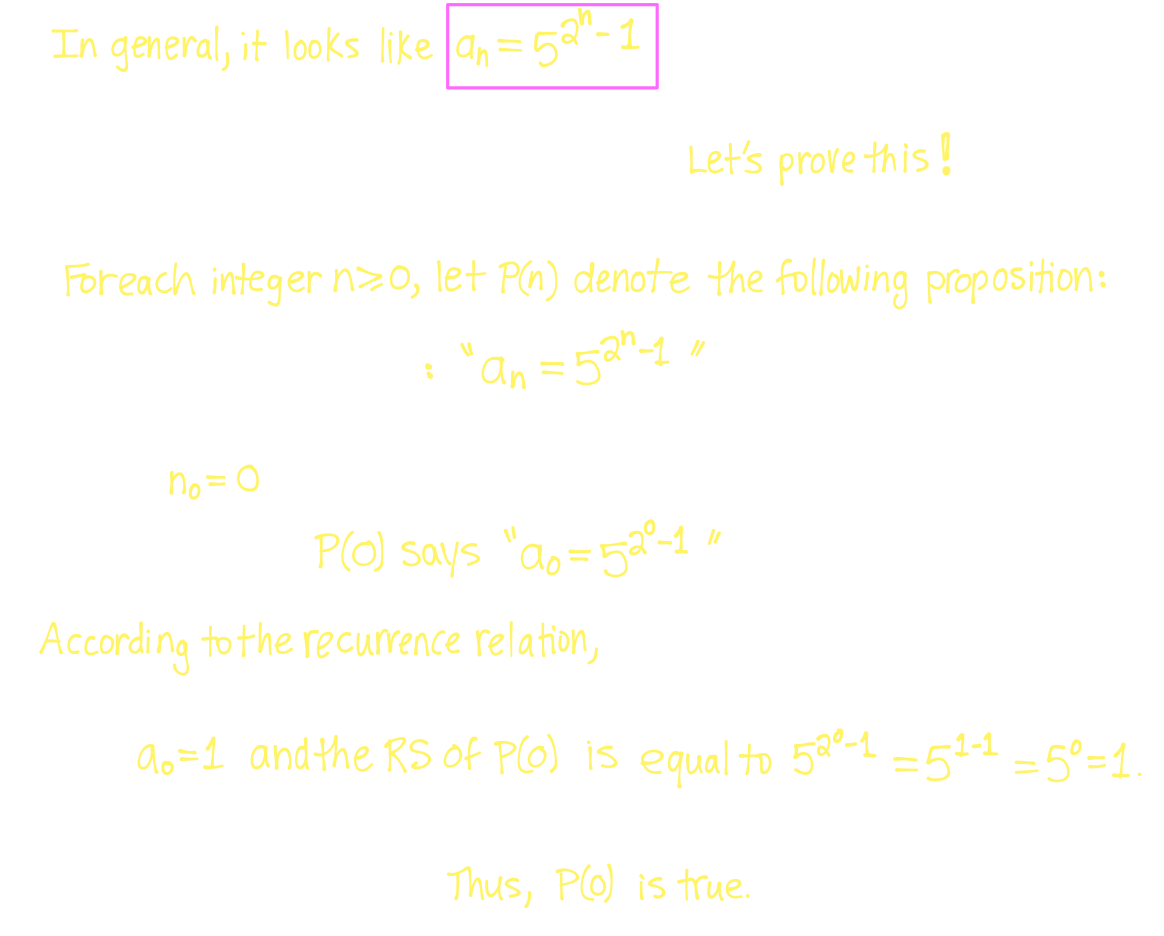 In general, it looks like aₙ = 5^(2ⁿ-1)
Let's prove this!
For each integer n≥0, let P(n) denote the following proposition:
: "aₙ = 5^(2ⁿ-1) "
n₀ = 0
P(0) says "a₀ = 5^(2⁰-1) "
According to the recurrence relation,
a₀=1 and the RS of P(0) is equal to 5^(2⁰-1) = 5^(1-1) = 5⁰ = 1.
Thus, P(0) is true.